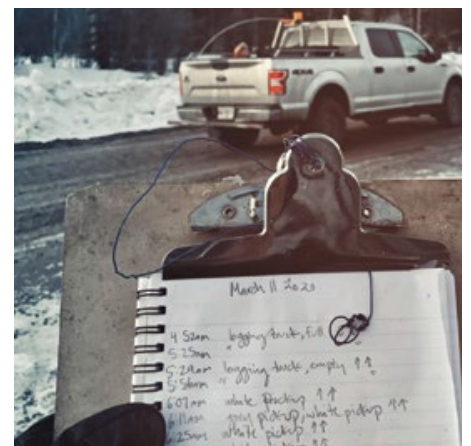 March 11 2020
4:52am logging truck, full
5:25am "
5:29am logging truck, empty ↑↑
5:56am "
6:07am white pickup ↑↑
6:11am grey pickup, white pickup ↑↑
6:25am white pickup ↑↑